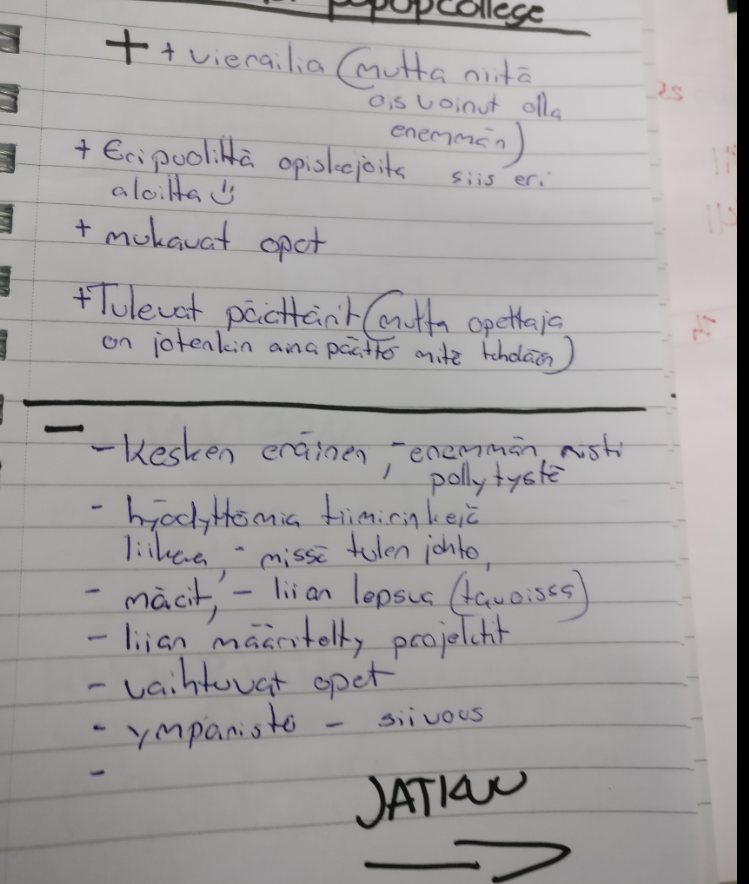 popupcollege
+ + vierailia (mutta niitä
ois voinut olla
enemmän)
+ Eripuolittä opiskejoita siis eri
aloilta
+ mukavat opet
+Tulevat päättärit (mutta opettaja
on jotenkin aina päättö mitä tehdään)
- - Kesken eräinen, - enemmän risti
pollytystä
- hyödyttömiä tiimirinkejä
liikaa, - missä tulen johto,
- mäcit, - liian lepsua (tavoissa)
- liian määritelty projektit
- vaihtuvat opet
- ympäristö - siivous
-
JATKUU